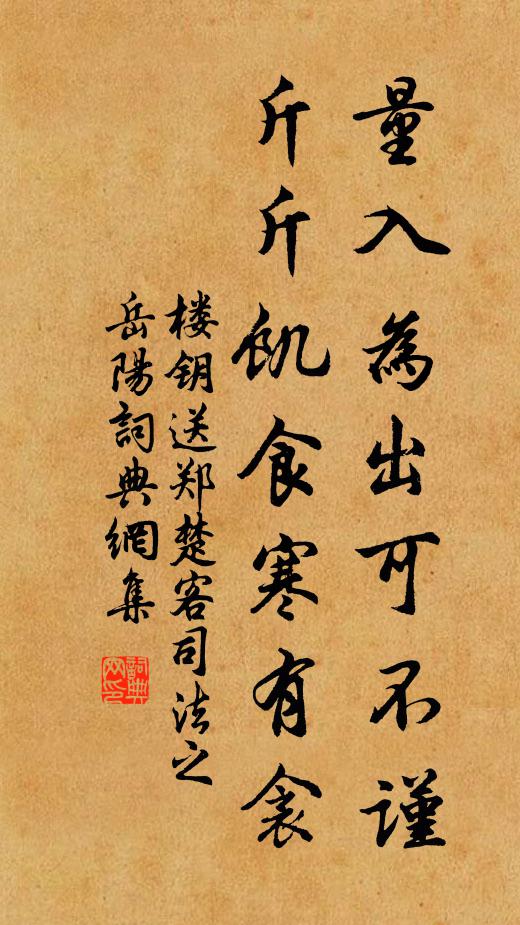 量入為出可不謹
斤斤飢食寒有衾
楼钥送郑楚客司法之
岳陽詞典網集
詞典
网印